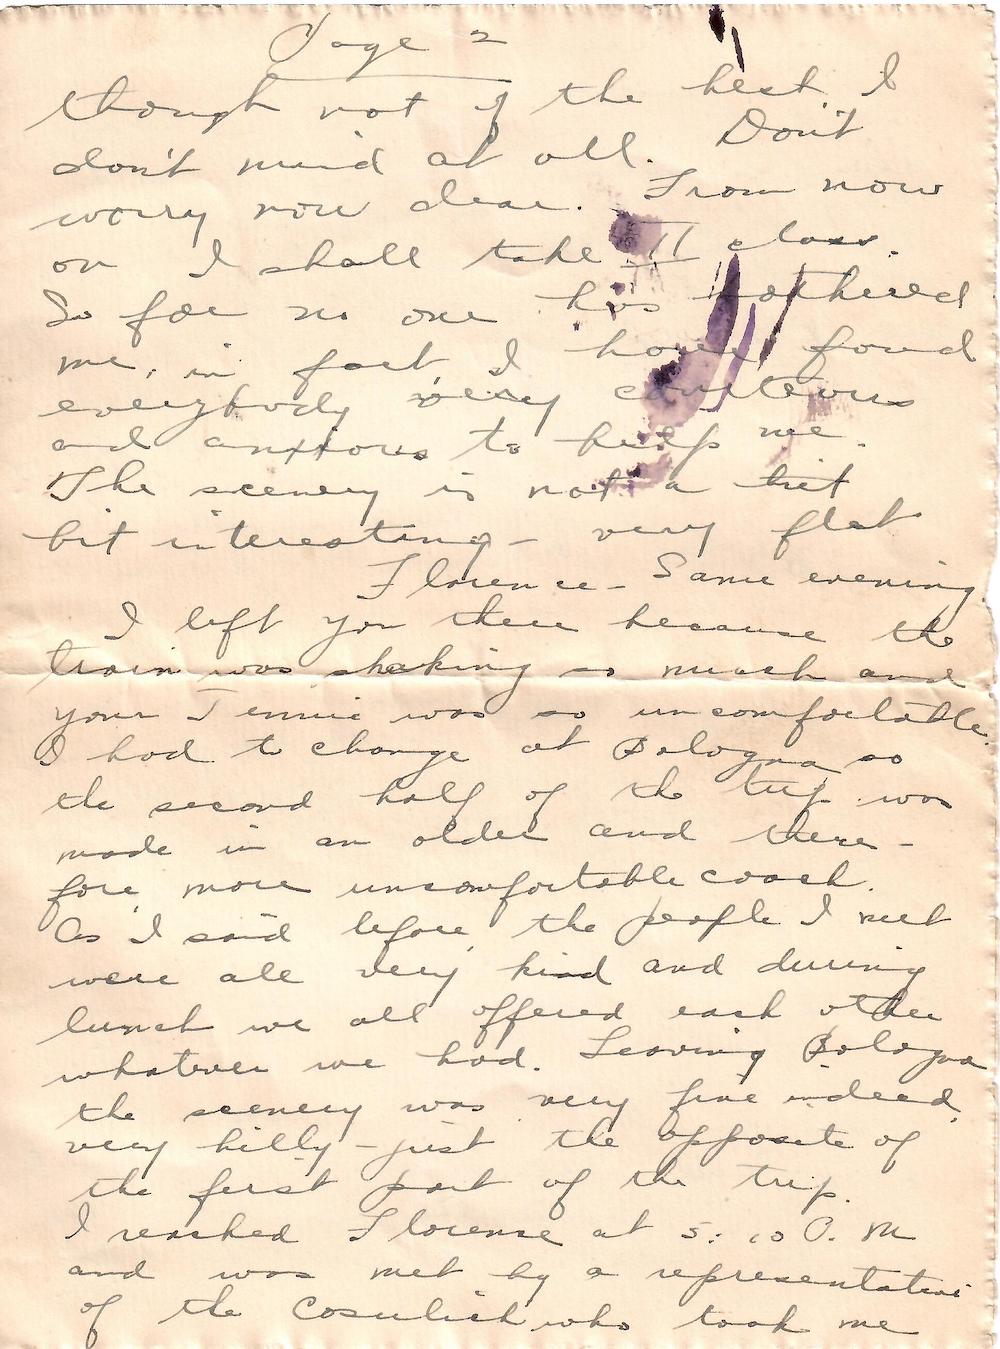 Page 2
though not of the best, I
don't mind at all. Don't
worry now dear. From now
on I shall take II class.
So far no one has bothered
me, in fact, I have found
everybody very courteous
and anxious to help me.
The scenery is not a bit
bit interesting - very flat
Florence - Same evening.
I left you there because the
train was shaking so much and
your Jennie was so uncomfortable.
I had to change at Bologna so
the second half of the trip was
made in an older and there-
fore, more uncomfortable coach.
As I said before, the people I met
were all very kind and during
lunch we all offered each other
whatever we had. Leaving Bologna
the scenery was very fine indeed,
very hilly - just the opposite of
the first part of the trip.
I reached Florence at 5:10 P.M
and was met by a representative
of the Cosulich who took me